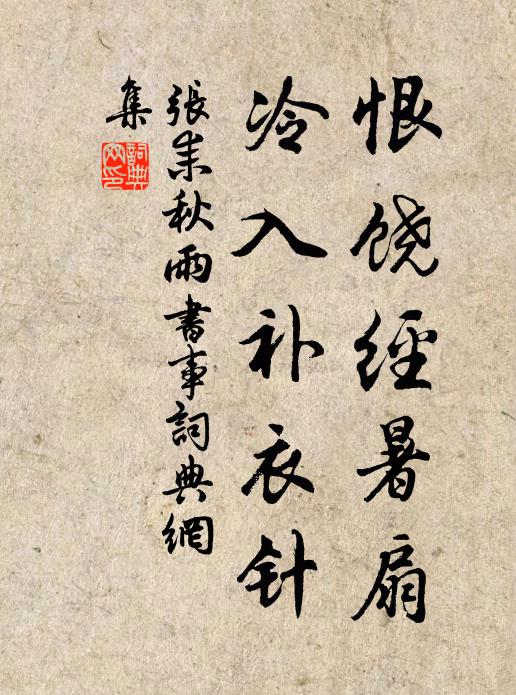 恨饶經暑扇
冷入补衣针
張耒秋雨書事詞典網
集
詞典
网印